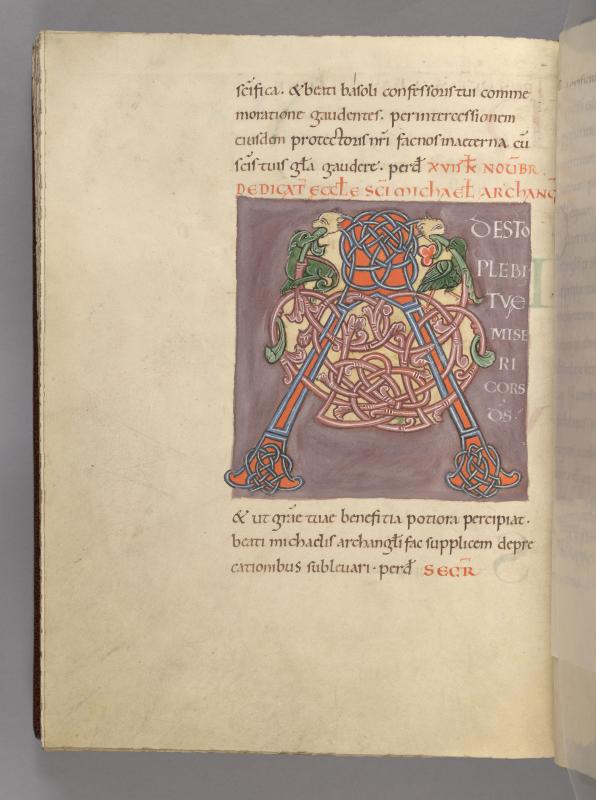 scīfica. & beati basoli confessoris tui comme
moratione gaudentes. per intercessionem
eiusdem protectoris nr̄i fac nos in aeterna cū
scīs tuis glā gaudere. perd̄ XVI K NOUĒBR.
DEDICAT̄ ECCL̄E SC̄I MICHAEL ARCHANḠ
A
DESTO
PLEBI
TVE
MISE
RI
CORS
D̄S.
& ut grāe tuae benefitia potiora percipiat.
beati michaelis archangl̄i fac supplicem depre
cationibus sublevari. perd̄ SECR̄